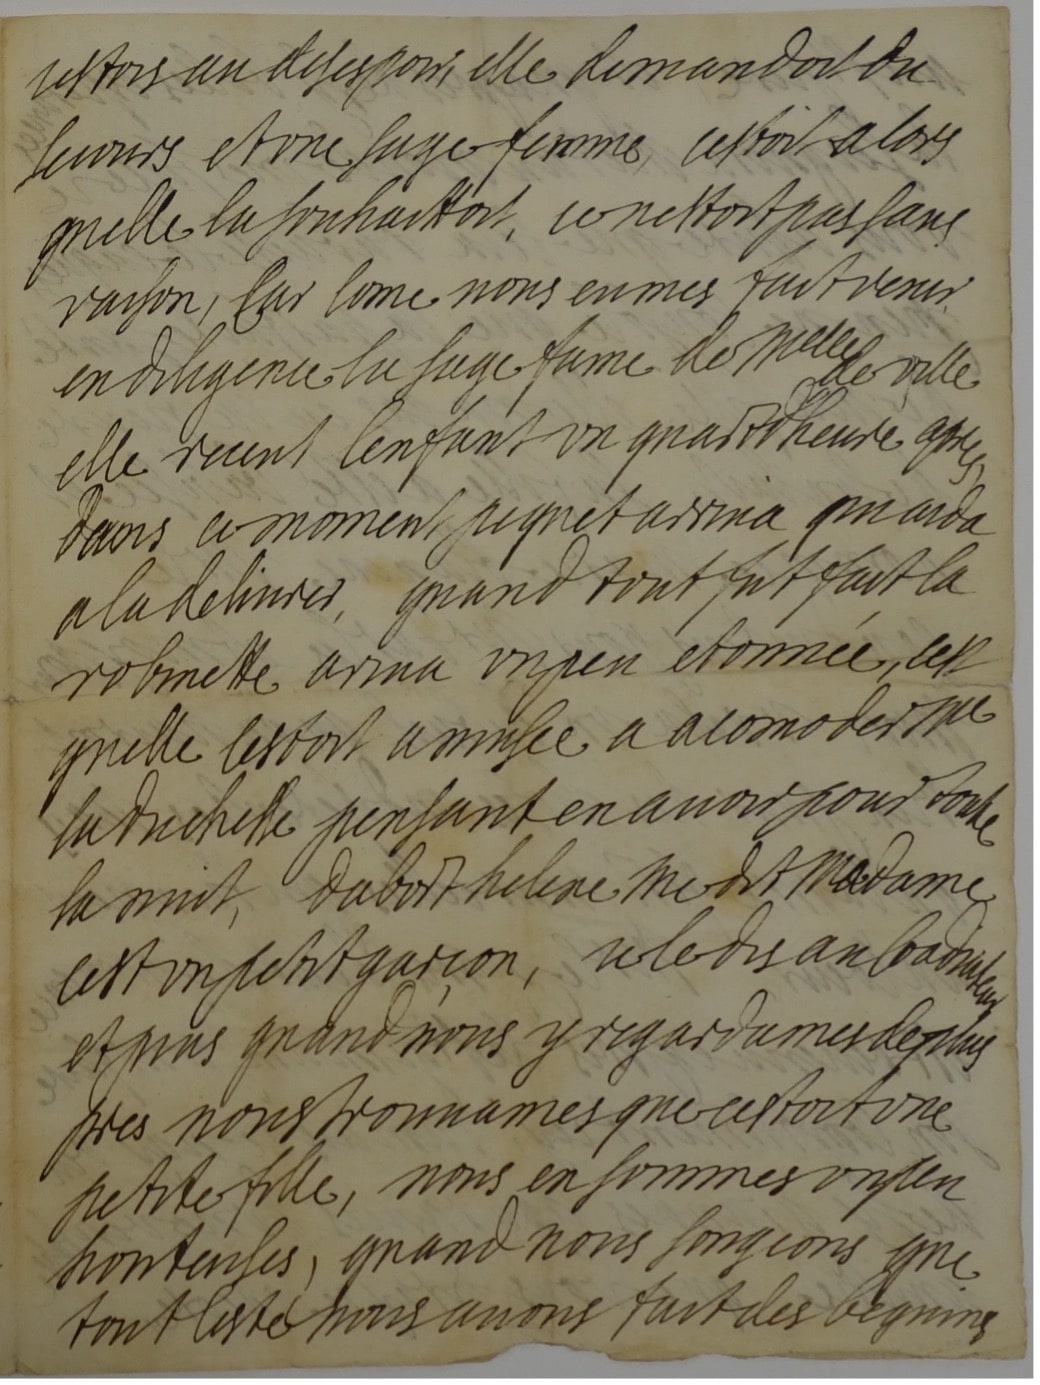 jestois au desespoir, elle demandoit du
secours et vne sage femme, cestoit alors
quelle la souhaittoit, ce nestoit pas sans
raison, Car come nous eumes fait venir
en diligence la sage fame de Melle de ville
elle receut lenfant vn quart dheure apres,
dans ce moment pequet arriua qui aida
a la deliurer, quand tout fut fait la
robinette ariua vn peu etonnée, cest
quelle sestoit amusée a acomoder me
la duchesse pensant en auoir pour toute
la nuit, dabort helene me dit Madame
cest vn petit garcon, ie le dis au Coadiuteur
et puis quand nous y regardames de plus
pres nous trouuames que cestoit vne
petite fille, nous en sommes vn peu
honteuses, quand nous songeons que
tout lesté nous auons fait des beguins